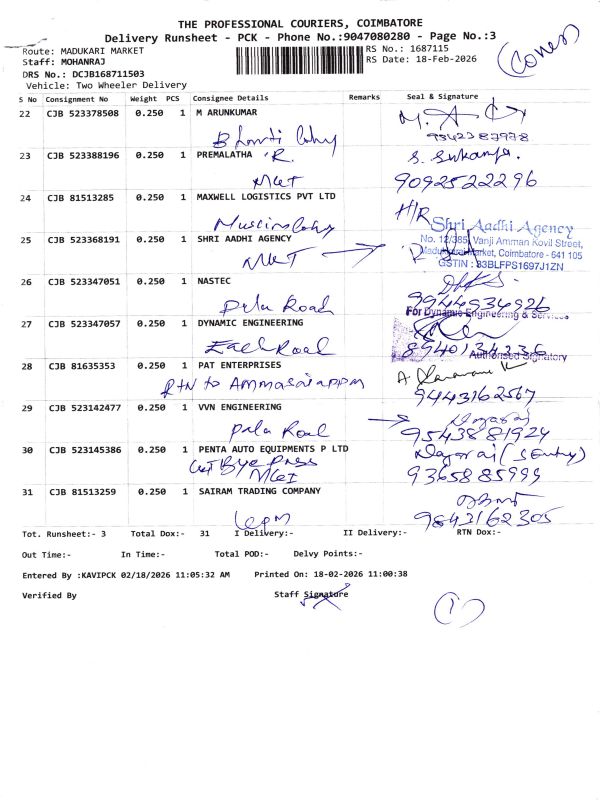 THE PROFESSIONAL COURIERS, COIMBATORE
Delivery Runsheet - PCK - Phone No.:9047080280 - Page No.:3
Route: MADUKARI MARKET
RS No.: 1687115
Staff: MOHANRAJ
RS Date: 18-Feb-2026
DRS No.: DCJB168711503
Vehicle: Two Wheeler Delivery
S No Consignment No Weight PCS Consignee Details Remarks Seal & Signature
22 CJB 523378508 0.250 1 M ARUNKUMAR
23 CJB 523388196 0.250 1 PREMALATHA R.
MKT
9092522296
24 CJB 81513285 0.250 1 MAXWELL LOGISTICS PVT LTD
H/R
Shri Aadhi Agency
25 CJB 523368191 0.250 1 SHRI AADHI AGENCY
No. 12/385, Vanji Amman Kovil Street,
MKT
Market, Coimbatore - 641 105
GSTIN : 33BLFPS1697J1ZN
26 CJB 523347051 0.250 1 NASTEC
9944934926
Road
For Dynamic Engineering & Services
27 CJB 523347057 0.250 1 DYNAMIC ENGINEERING
Road
Authorised Signatory
28 CJB 81635353 0.250 1 PAT ENTERPRISES
RTN to
9443162567
29 CJB 523142477 0.250 1 VVN ENGINEERING
9543881924
30 CJB 523145386 0.250 1 PENTA AUTO EQUIPMENTS P LTD
9365885999
31 CJB 81513259 0.250 1 SAIRAM TRADING COMPANY
9843162305
Tot. Runsheet:- 3 Total Dox:- 31 I Delivery:- II Delivery:- RTN Dox:-
Out Time:- In Time:- Total POD:- Delvy Points:-
Entered By :KAVIPCK 02/18/2026 11:05:32 AM Printed On: 18-02-2026 11:00:38
Verified By Staff Signature